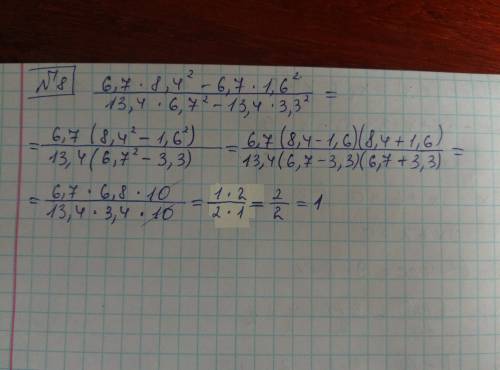 №8 (6,7 · 8,4² − 6,7 · 1,6²)/(13,4 · 6,7² − 13,4 · 3,3²) =
= (6,7 (8,4² − 1,6²))/(13,4 (6,7² − 3,3)) = (6,7 (8,4 − 1,6)(8,4 + 1,6))/(13,4 (6,7 − 3,3)(6,7 + 3,3)) =
= (6,7 · 6,8 · 10)/(13,4 · 3,4 · 10) = (1 · 2)/(2 · 1) = 2/2 = 1